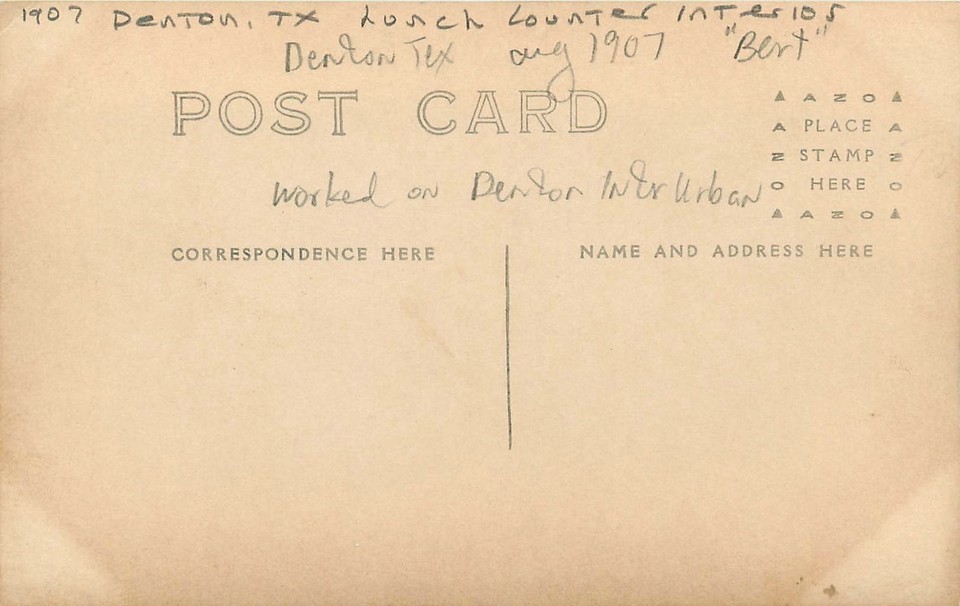 1907 Denton, TX Lunch Counter Interior
Denton Tex aug 1907 "Bert"
POST CARD
▲ A Z O ▲
A PLACE A
Z STAMP Z
O HERE O
▲ A Z O ▲
worked on Denton InterUrban
CORRESPONDENCE HERE
NAME AND ADDRESS HERE